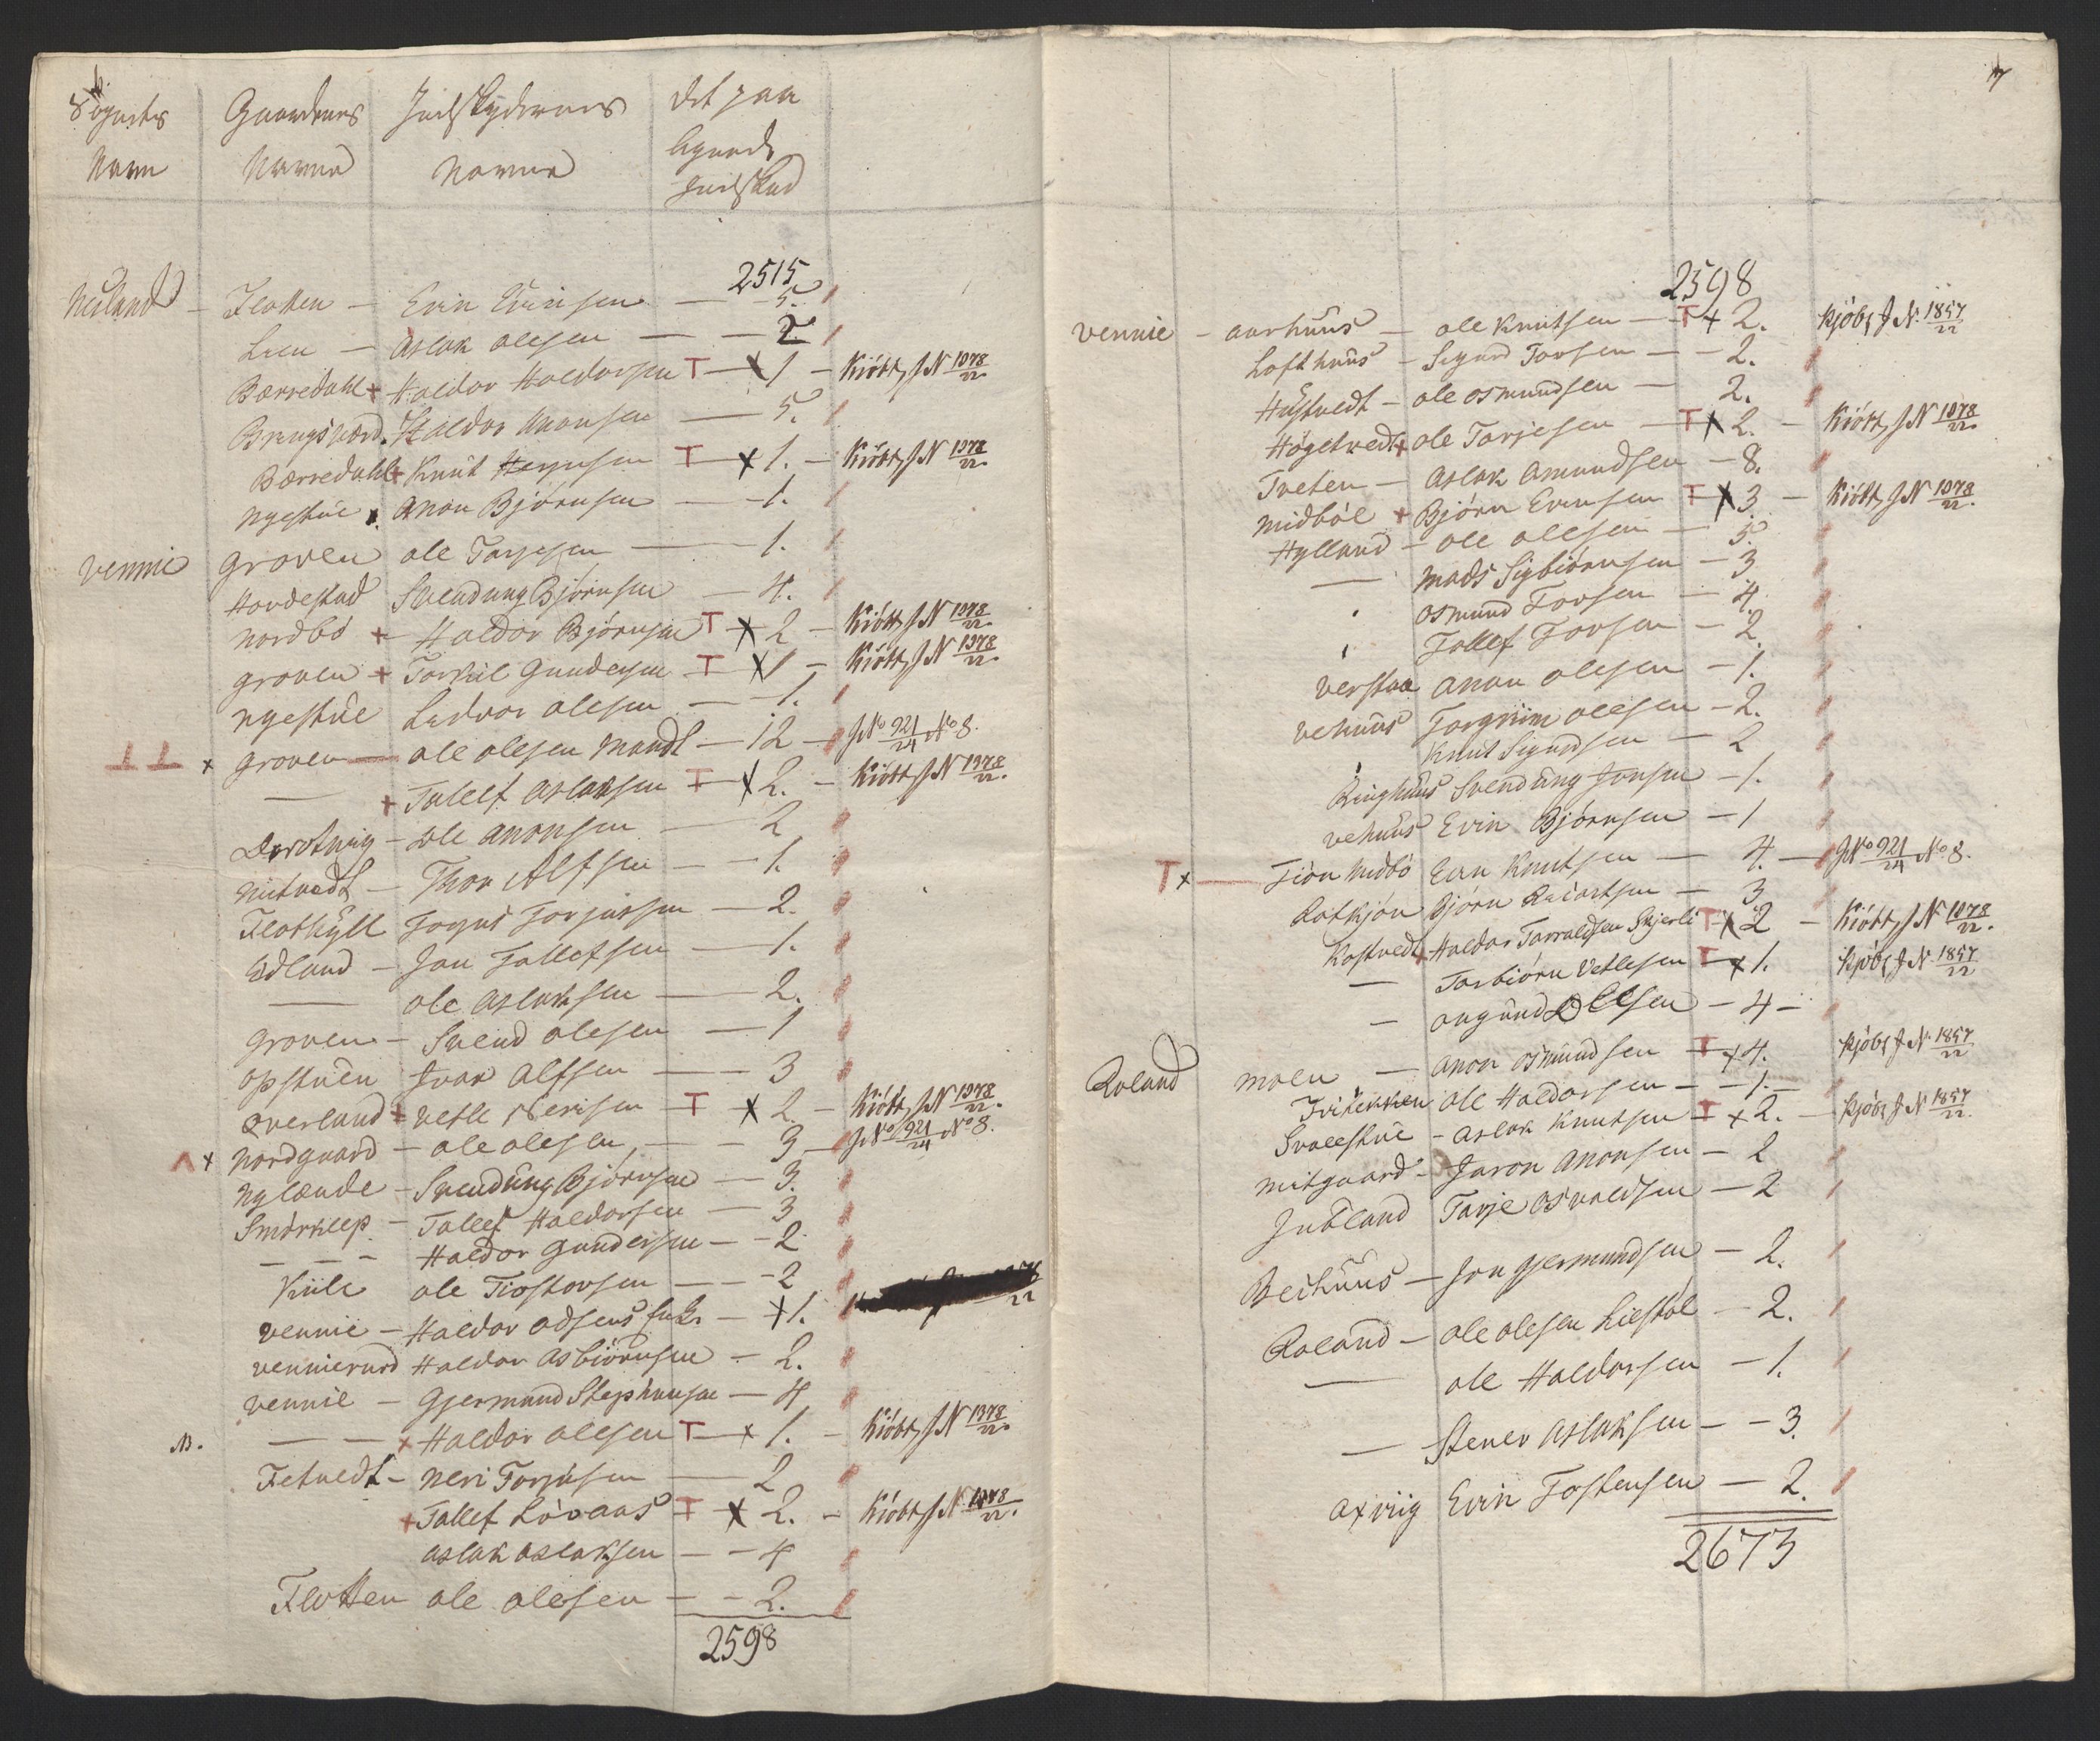 6.
Sognets Navn
Gaardenes Navne
Indskydernes Navne
det paa lignede Indskud
2515
Nesland - Flotten - Evin Evinsen - 5.
Lien - Aslak Olesen - - 2.
Borredahl + Haldor Haldorsen T - X 1 - Kiöbt, J N 1378/22.
Haldor Anonsen - 5.
Borredahl + Knut T - X 1. - Kiöbt, J N 1378/22.
Nystue . Anon Bjørnsen - - 1.
Vennie Groven Ole Tarjesen - 1.
Hordestad Svendung Bjørnsen - 4.
Nordbö + - Haldor Bjørnsen T - X 2 - Kiöbt J N 1378/22.
Groven + Torkil Gundersen T X 1 - Kiöbt, J N 1378/22.
Nyestue Ledvor Olesen - 1.
T T x Groven - Ole Olesen Mandt - 12 - J No 921/24 No 8.
— + Tallef Aslaksen T - X 2. - Kiöbt J N 1378/22.
- Ole Anonsen - 2
Mitvedt - Thor Alfsen - - 1.
Flothyll Torjus Torjussen - 2.
Edland - Jon Tallefsen - 1.
— Ole Aslaksen - 2.
Groven - Svend Olesen - 1
Opstuen Ivar Alfsen - - 3
Överland + Vetle Nerisen - T X 2 - Kiöbt, J N 1378/22.
^ x Nordgaard - Ole Olesen - - 3 - J No 921/24 No 8.
Nylænde - Svendung Bjørnsen - 3.
Smörklep - Tallef Haldorsen - 3
- - - Haldor Gundersen - - 2
Kiile Ole Tiostovsen - - - 2
Vennie - Haldor Odsens Enke - X 1.
Haldor Asbiörnsen - 2.
Vennie - Gjermund Stephansen - 4
NB. - - x Haldor Olesen T - x 1. - Kiöbt, J N 1378/22.
Fetvedt - Neri Torjusen - 2
+ Tallef Lövaas T X 2. - Kiöbt J N 1378/22.
Aslak Aslaksen - - 4
Flotten Ole Olesen - - 2.
2598
7
2598
Vennie - Aarhuus - Ole Knutsen - T + 2. Kjöbt J N. 1857/22
Lofthuus - Sigurd Torsen - - 2.
Hustvedt - Ole Osmundsen - 2.
Högetvedt + Ole Tarjesen - T X 2. - Kiöbt, J N 1378/22.
Tveten - Aslak Amundsen - 8.
Midböe + Bjørn Evensen T X 3 - Kiöbt, J N 1378/22.
Hylland - Ole Olesen - 5.
— Mads Sigbiörnsen - 3
. Osmund Torsen - 4.
. Tallef Torsen - 2.
Verstaa Anon Olesen - 1.
Vehuus Torgrim Olesen - 2.
. Knut Sigurdsen - 2
Ringhuus Svendung Jonsen - 1.
Vehuus Evin Bjørnsen - 1
T x — Tiön Midbö Even Knutsen - 4. - J No 921/24 No 8.
Rotkjön Bjørn - 3
Kostvedt + Haldor Tarraldsen Skjerli T X 2 - Kiöbt, J N 1378/22.
— Torbiörn Vetlesen T x 1. Kjöbt J N. 1857/22
— Ougund Olsen - 4 -
Roland Moen - Anon Osmundsen T x 4. Kjöbt J N. 1857/22
Ole Haldorsen - - 1. -
Svalestue - Aslak Knutsen T x 2. - Kjöbt J N 1857/22.
Mitgaard - Anonsen - 2
Jubland Tarje Osvaldsen - 2
Beihuus - Jon Gjermundsen - 2.
Roland - Ole Olesen Liestöl - 2.
— Ole Haldorsen - 1.
— Stener Aslaksen - - 3.
Axviig Evin Tostensen - 2.
2673